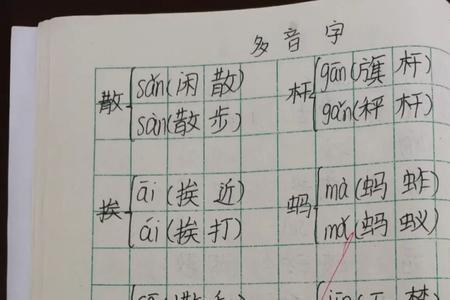 多音字
散 sǎn(闲散)
sàn(散步)
杆 gān(旗杆)
gǎn(秤杆)
挨 āi(挨近)
ái(挨打)
蚂 mà(蚂蚱)
mǎ(蚂蚁)